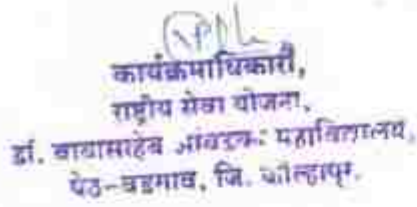 कार्यक्रमाधिकारी,
राष्ट्रीय सेवा योजना,
डॉ. बाबासाहेब आंबेडकर महाविद्यालय,
पेठ-वडगाव, जि. कोल्हापूर.